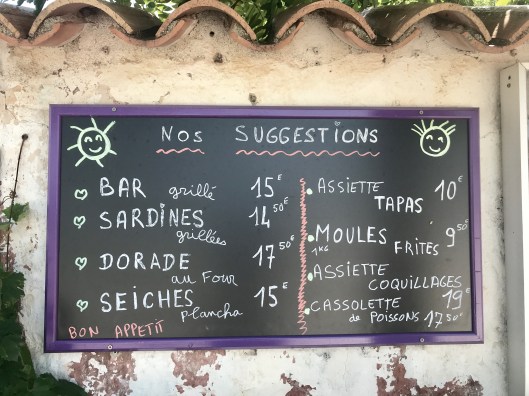 Nos SUGGESTIONS
BAR grillé 15€
SARDINES 14,50€
grillées
DORADE 17,50€
au Four
SEICHES 15€
plancha
BON APPETIT
ASSIETTE 10€
TAPAS
MOULES 9,50€
1KG FRITES
ASSIETTE
COQUILLAGES
19€
CASSOLETTE
de POISSONS 17,50€